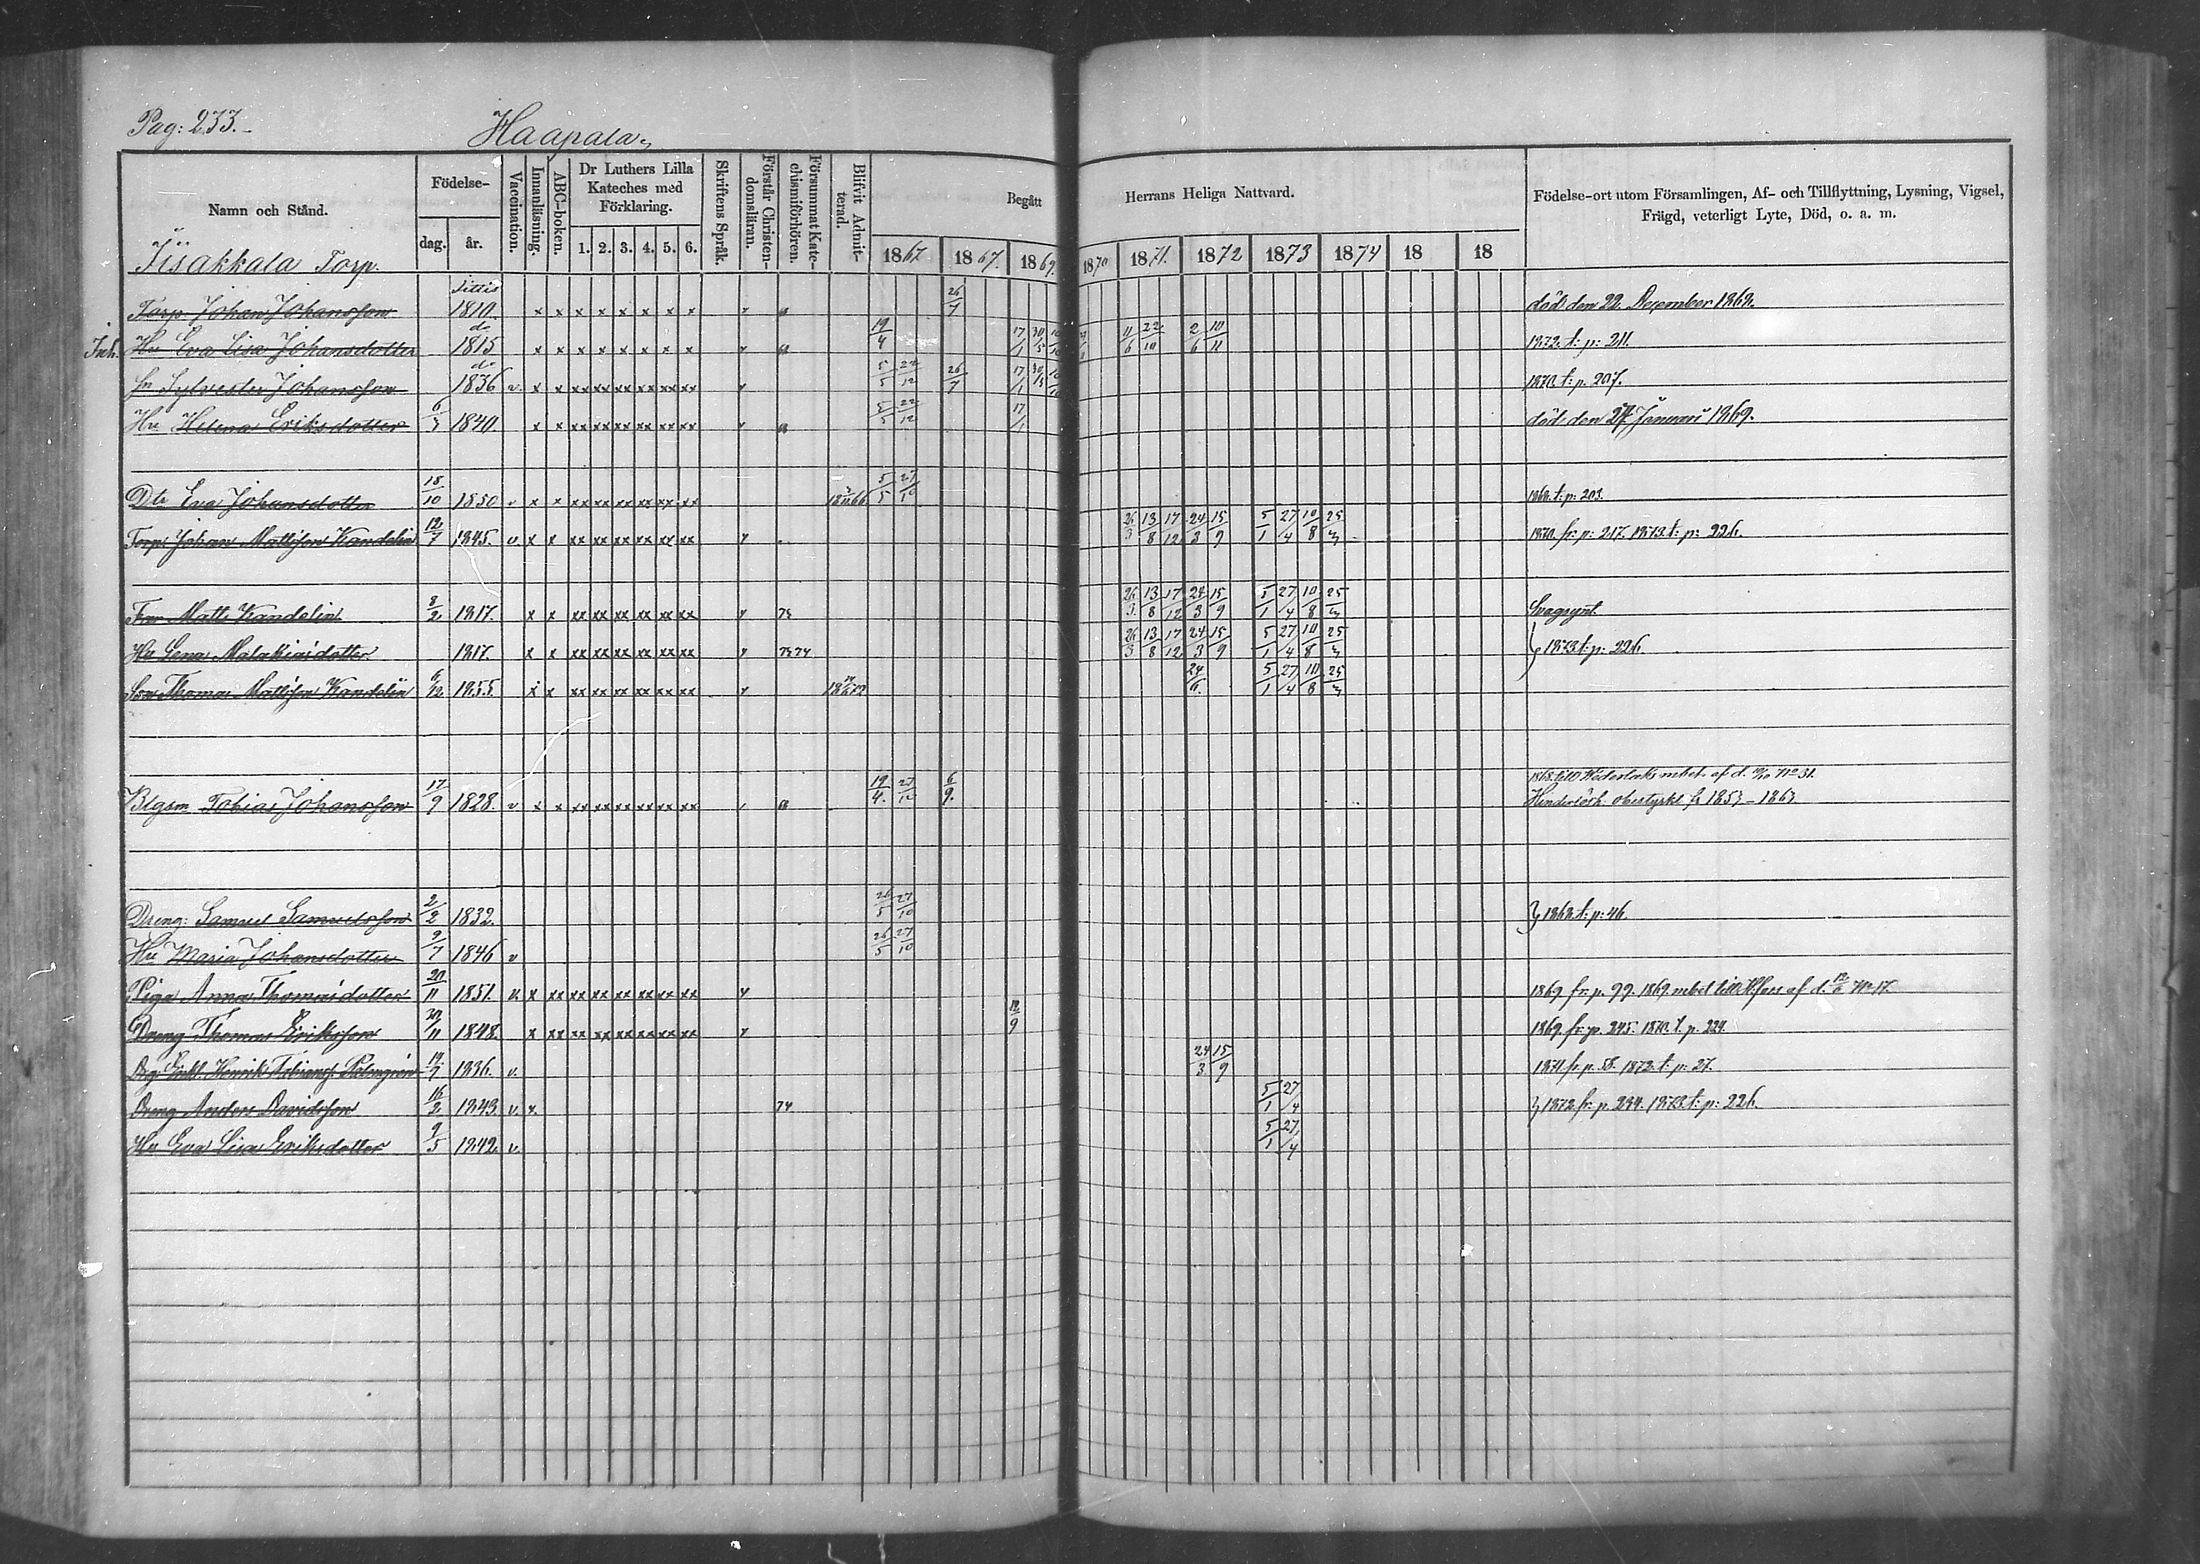 Pag: 233.
Haapala
Namn och Stånd.
Födelse-
dag.
år.
Vaccination.
Innanläsning.
ABC-boken.
Dr Luthers Lilla
Kateches med
Förklaring.
1. 2. 3. 4. 5. 6.
Skriftens Språk.
Förstår Christen-
domsläran.
Försummat Kate-
chismiförhören.
Blifvit Admit-
terad.
Begått
Herrans Heliga Nattvard.
1867. 1867. 1869. 1870 1871. 1872 1873 1874 18 18
Födelse-ort utom Församlingen, Af- och Tillflyttning, Lysning, Vigsel,
Frägd, veterligt Lyte, Död, o. a. m.
Iisakkala Torp.
Torp. Johan Johansson 1810. x x x x x x x x 26/7 död den 22 December 1868.
Inh. Hu Eva Lisa Johansdotter 1815 x x x x x x x x 19/4 17/1 30/5 11/6 22/10 2/6 10/11 1872. t: p: 211.
Sn Sylvester Johansson 1836 v. x x xx xx xx xx xx xx 5/5 22/12 26/7 17/1 1870. t: p. 207.
Hu Helena Eriksdotter 1840. x x xx xx xx xx xx xx 5/5 22/12 17/1 död den 27 Januari 1869.
Dtr Eva Johansdotter 18/10 1850 v x x xx xx xx xx xx xx 5/5 27/10 1868. t: p: 203.
Torp. Johan Mattsson Kandelin 12/7 1845. v. x x xx xx xx xx xx xx 26/3 13/8 17/12 24/3 15/9 5/1 27/4 10/8 25/3 1870. fr: p: 217. 1873. t: p: 226.
Far Matts Kandelin 8/2 1817. x x xx xx xx xx xx xx 73 26/3 13/8 17/12 24/3 15/9 5/1 27/4 10/8 25/3 Svagsynt.
Hu Lena Malakiaidotter 1817. x x xx xx xx xx xx xx 73 74 26/3 13/8 17/12 24/3 15/9 5/1 27/4 10/8 25/3 } 1873. t: p: 226.
Son Thomas Mattsson Kandelin 6/12 1855. x x xx xx xx xx xx xx 24/6 5/1 27/4 10/8 25/3
Blgsm Tobias Johansson 17/9 1828. v x x xx xx xx xx xx xx 19/4. 27/12 6/9. 1868. till Wederlaks mbet. af d. No 31.
Hinderlösh. obestyrkt fr 1853 - 1863.
Dreng: Samuel Samuelsson 2/2 1832. 26/5 27/10 } 1868. t: p: 46.
Hu Maria Johansdotter 9/7 1846 v 26/5 27/10
Piga Anna Thomaidotter 20/11 1851. v. x xx xx xx xx xx xx xx 1869. fr. p. 99. 1869. mbet till Hfors af d. 12/6 No 17.
Dreng Thomas Eriksson 30/11 1848. x xx xx xx xx xx xx xx 12/9 1869. fr. p. 245. 1870. t. p. 224.
Drg. Enkl. Henrik Palmgren 19/7 1836. v. 24/3 15/9 1871. fr. p. 58. 1872. t: p: 27.
Dreng Anders Davidsson 16/2 1843 v. x. 74 5/1 27/4 } 1872. fr. p. 234. 1873. t: p: 226.
Hu Eva Lisa Eriksdotter 9/5 1842. v. 5/1 27/4